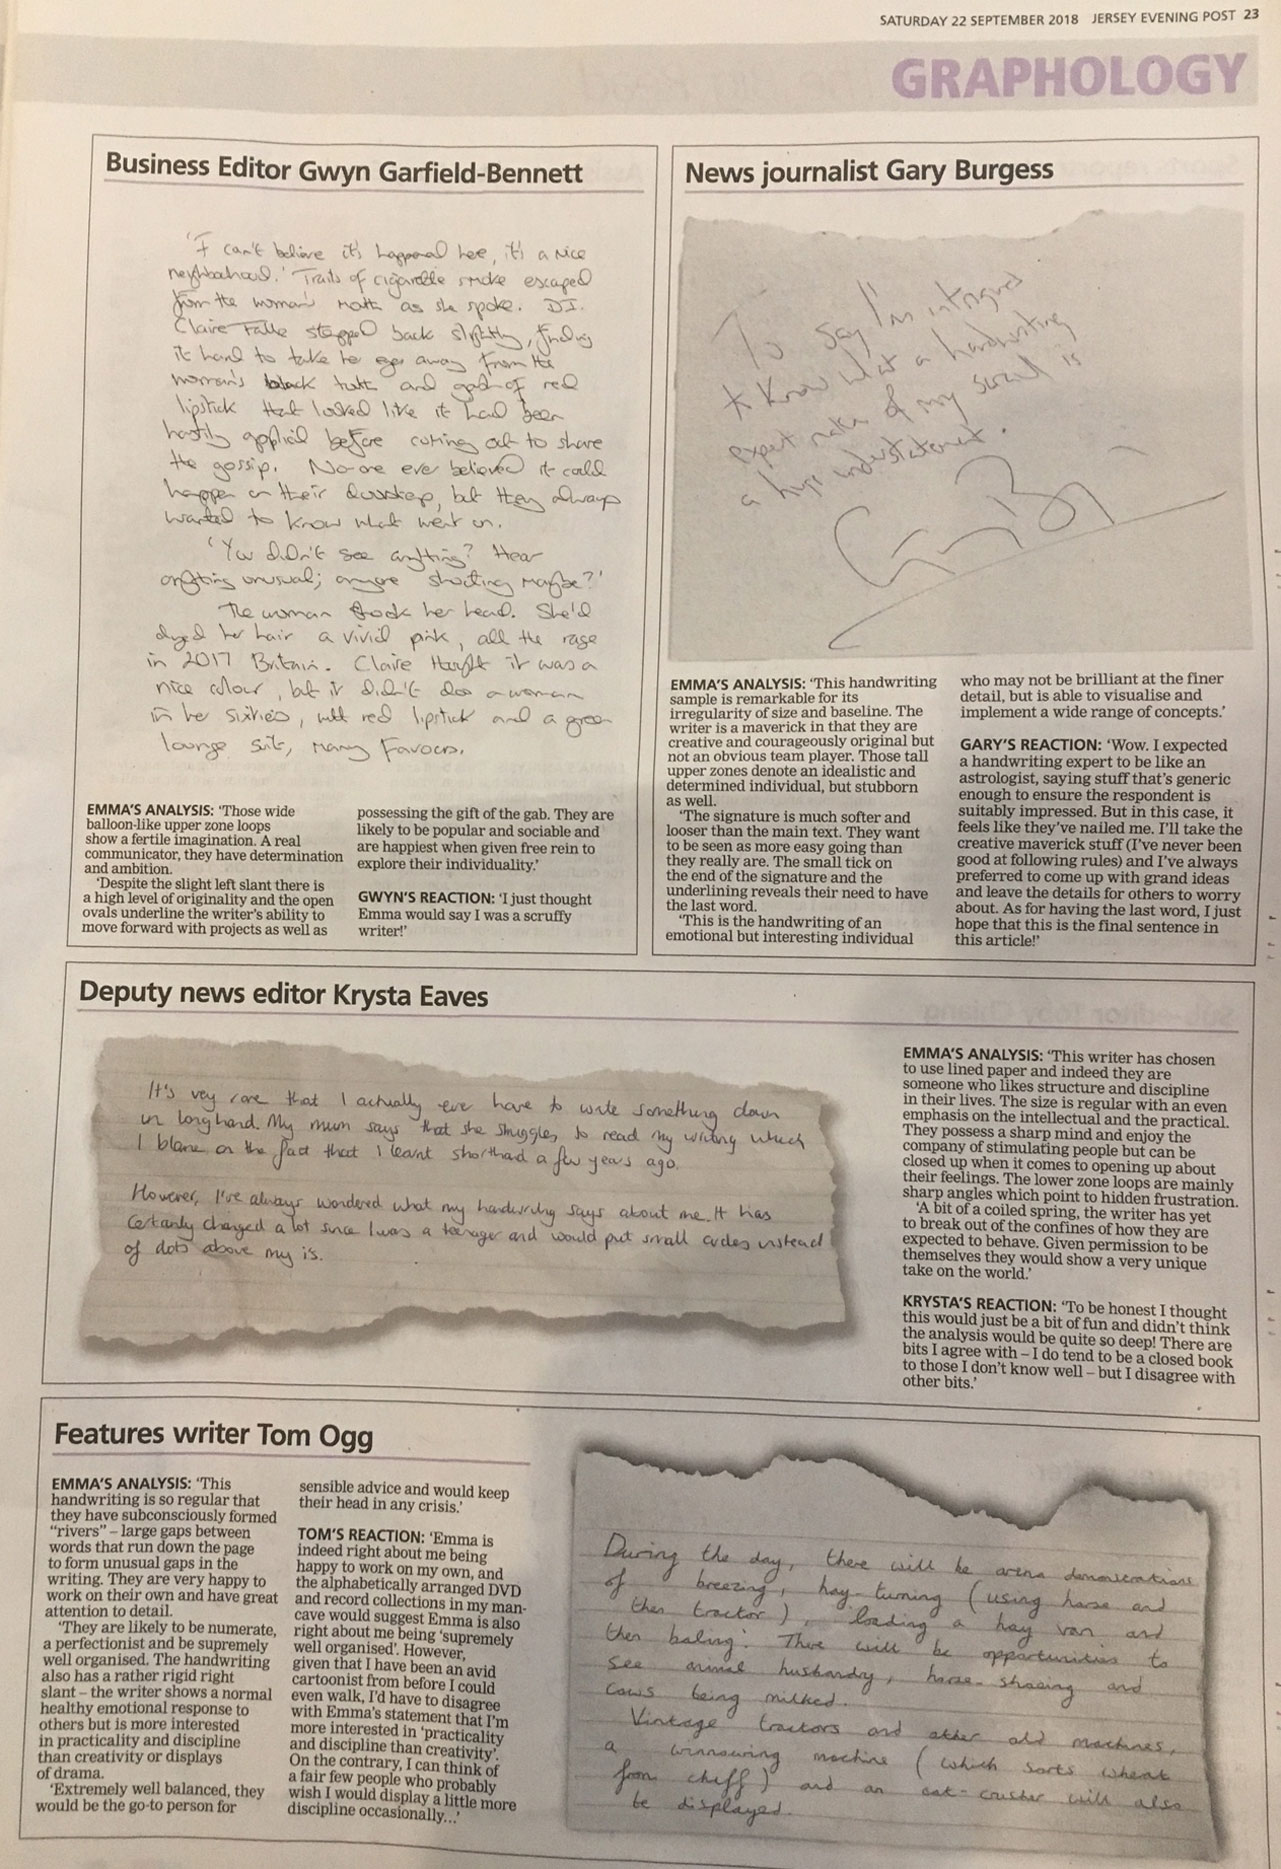 SATURDAY 22 SEPTEMBER 2018 JERSEY EVENING POST 23
GRAPHOLOGY
Business Editor Gwyn Garfield-Bennett
'I can't believe it's happened here, it's a nice
neighbourhood.' Trails of cigarette smoke escaped
from the woman's mouth as she spoke. DI.
Claire Falle stepped back slightly, finding
it hard to take her eyes away from the
woman's black tuth and gash of red
lipstick that looked like it had been
hastily applied before coming out to share
the gossip. No-one ever believed it could
happen on their doorstep, but they always
wanted to know what went on.
'You didn't see anything? Hear
anything unusual; anyone shouting maybe?'
The woman shook her head. She'd
dyed her hair a vivid pink, all the rage
in 2017 Britain. Claire thought it was a
nice colour, but it didn't do a woman
in her sixties, with red lipstick and a green
lounge suit, many favours.
EMMA'S ANALYSIS: 'Those wide
balloon-like upper zone loops
show a fertile imagination. A real
communicator, they have determination
and ambition.
'Despite the slight left slant there is
a high level of originality and the open
ovals underline the writer's ability to
move forward with projects as well as
possessing the gift of the gab. They are
likely to be popular and sociable and
are happiest when given free rein to
explore their individuality.'
GWYN'S REACTION: 'I just thought
Emma would say I was a scruffy
writer!'
News journalist Gary Burgess
To say I'm intrigued
to know what a handwriting
expert makes of my scrawl is
a huge understatement.
EMMA'S ANALYSIS: 'This handwriting
sample is remarkable for its
irregularity of size and baseline. The
writer is a maverick in that they are
creative and courageously original but
not an obvious team player. Those tall
upper zones denote an idealistic and
determined individual, but stubborn
as well.
'The signature is much softer and
looser than the main text. They want
to be seen as more easy going than
they really are. The small tick on
the end of the signature and the
underlining reveals their need to have
the last word.
'This is the handwriting of an
emotional but interesting individual
who may not be brilliant at the finer
detail, but is able to visualise and
implement a wide range of concepts.'
GARY'S REACTION: 'Wow. I expected
a handwriting expert to be like an
astrologist, saying stuff that's generic
enough to ensure the respondent is
suitably impressed. But in this case, it
feels like they've nailed me. I'll take the
creative maverick stuff (I've never been
good at following rules) and I've always
preferred to come up with grand ideas
and leave the details for others to worry
about. As for having the last word, I just
hope that this is the final sentence in
this article!'
Deputy news editor Krysta Eaves
It's very rare that I actually ever have to write something down
in longhand. My mum says that she struggles to read my writing which
I blame on the fact that I learnt shorthand a few years ago.
However, I've always wondered what my handwriting says about me. It has
certainly changed a lot since I was a teenager and would put small circles instead
of dots above my is.
EMMA'S ANALYSIS: 'This writer has chosen
to use lined paper and indeed they are
someone who likes structure and discipline
in their lives. The size is regular with an even
emphasis on the intellectual and the practical.
They possess a sharp mind and enjoy the
company of stimulating people but can be
closed up when it comes to opening up about
their feelings. The lower zone loops are mainly
sharp angles which point to hidden frustration.
'A bit of a coiled spring, the writer has yet
to break out of the confines of how they are
expected to behave. Given permission to be
themselves they would show a very unique
take on the world.'
KRYSTA'S REACTION: 'To be honest I thought
this would just be a bit of fun and didn't think
the analysis would be quite so deep! There are
bits I agree with – I do tend to be a closed book
to those I don't know well – but I disagree with
other bits.'
Features writer Tom Ogg
EMMA'S ANALYSIS: 'This
handwriting is so regular that
they have subconsciously formed
"rivers" – large gaps between
words that run down the page
to form unusual gaps in the
writing. They are very happy to
work on their own and have great
attention to detail.
'They are likely to be numerate,
a perfectionist and be supremely
well organised. The handwriting
also has a rather rigid right
slant – the writer shows a normal
healthy emotional response to
others but is more interested
in practicality and discipline
than creativity or displays
of drama.
'Extremely well balanced, they
would be the go-to person for
sensible advice and would keep
their head in any crisis.'
TOM'S REACTION: 'Emma is
indeed right about me being
happy to work on my own, and
the alphabetically arranged DVD
and record collections in my man-
cave would suggest Emma is also
right about me being 'supremely
well organised'. However,
given that I have been an avid
cartoonist from before I could
even walk, I'd have to disagree
with Emma's statement that I'm
more interested in 'practicality
and discipline than creativity'.
On the contrary, I can think of
a fair few people who probably
wish I would display a little more
discipline occasionally...'
During the day, there will be arena demonstrations
of breezing, hay-turning (using horse and
then tractor), loading a hay van and
then baling. There will be opportunities to
see animal husbandry, horse-shoeing and
cows being milked.
Vintage tractors and other old machines,
a winnowing machine (which sorts wheat
from chaff) and an oat-crusher will also
be displayed.